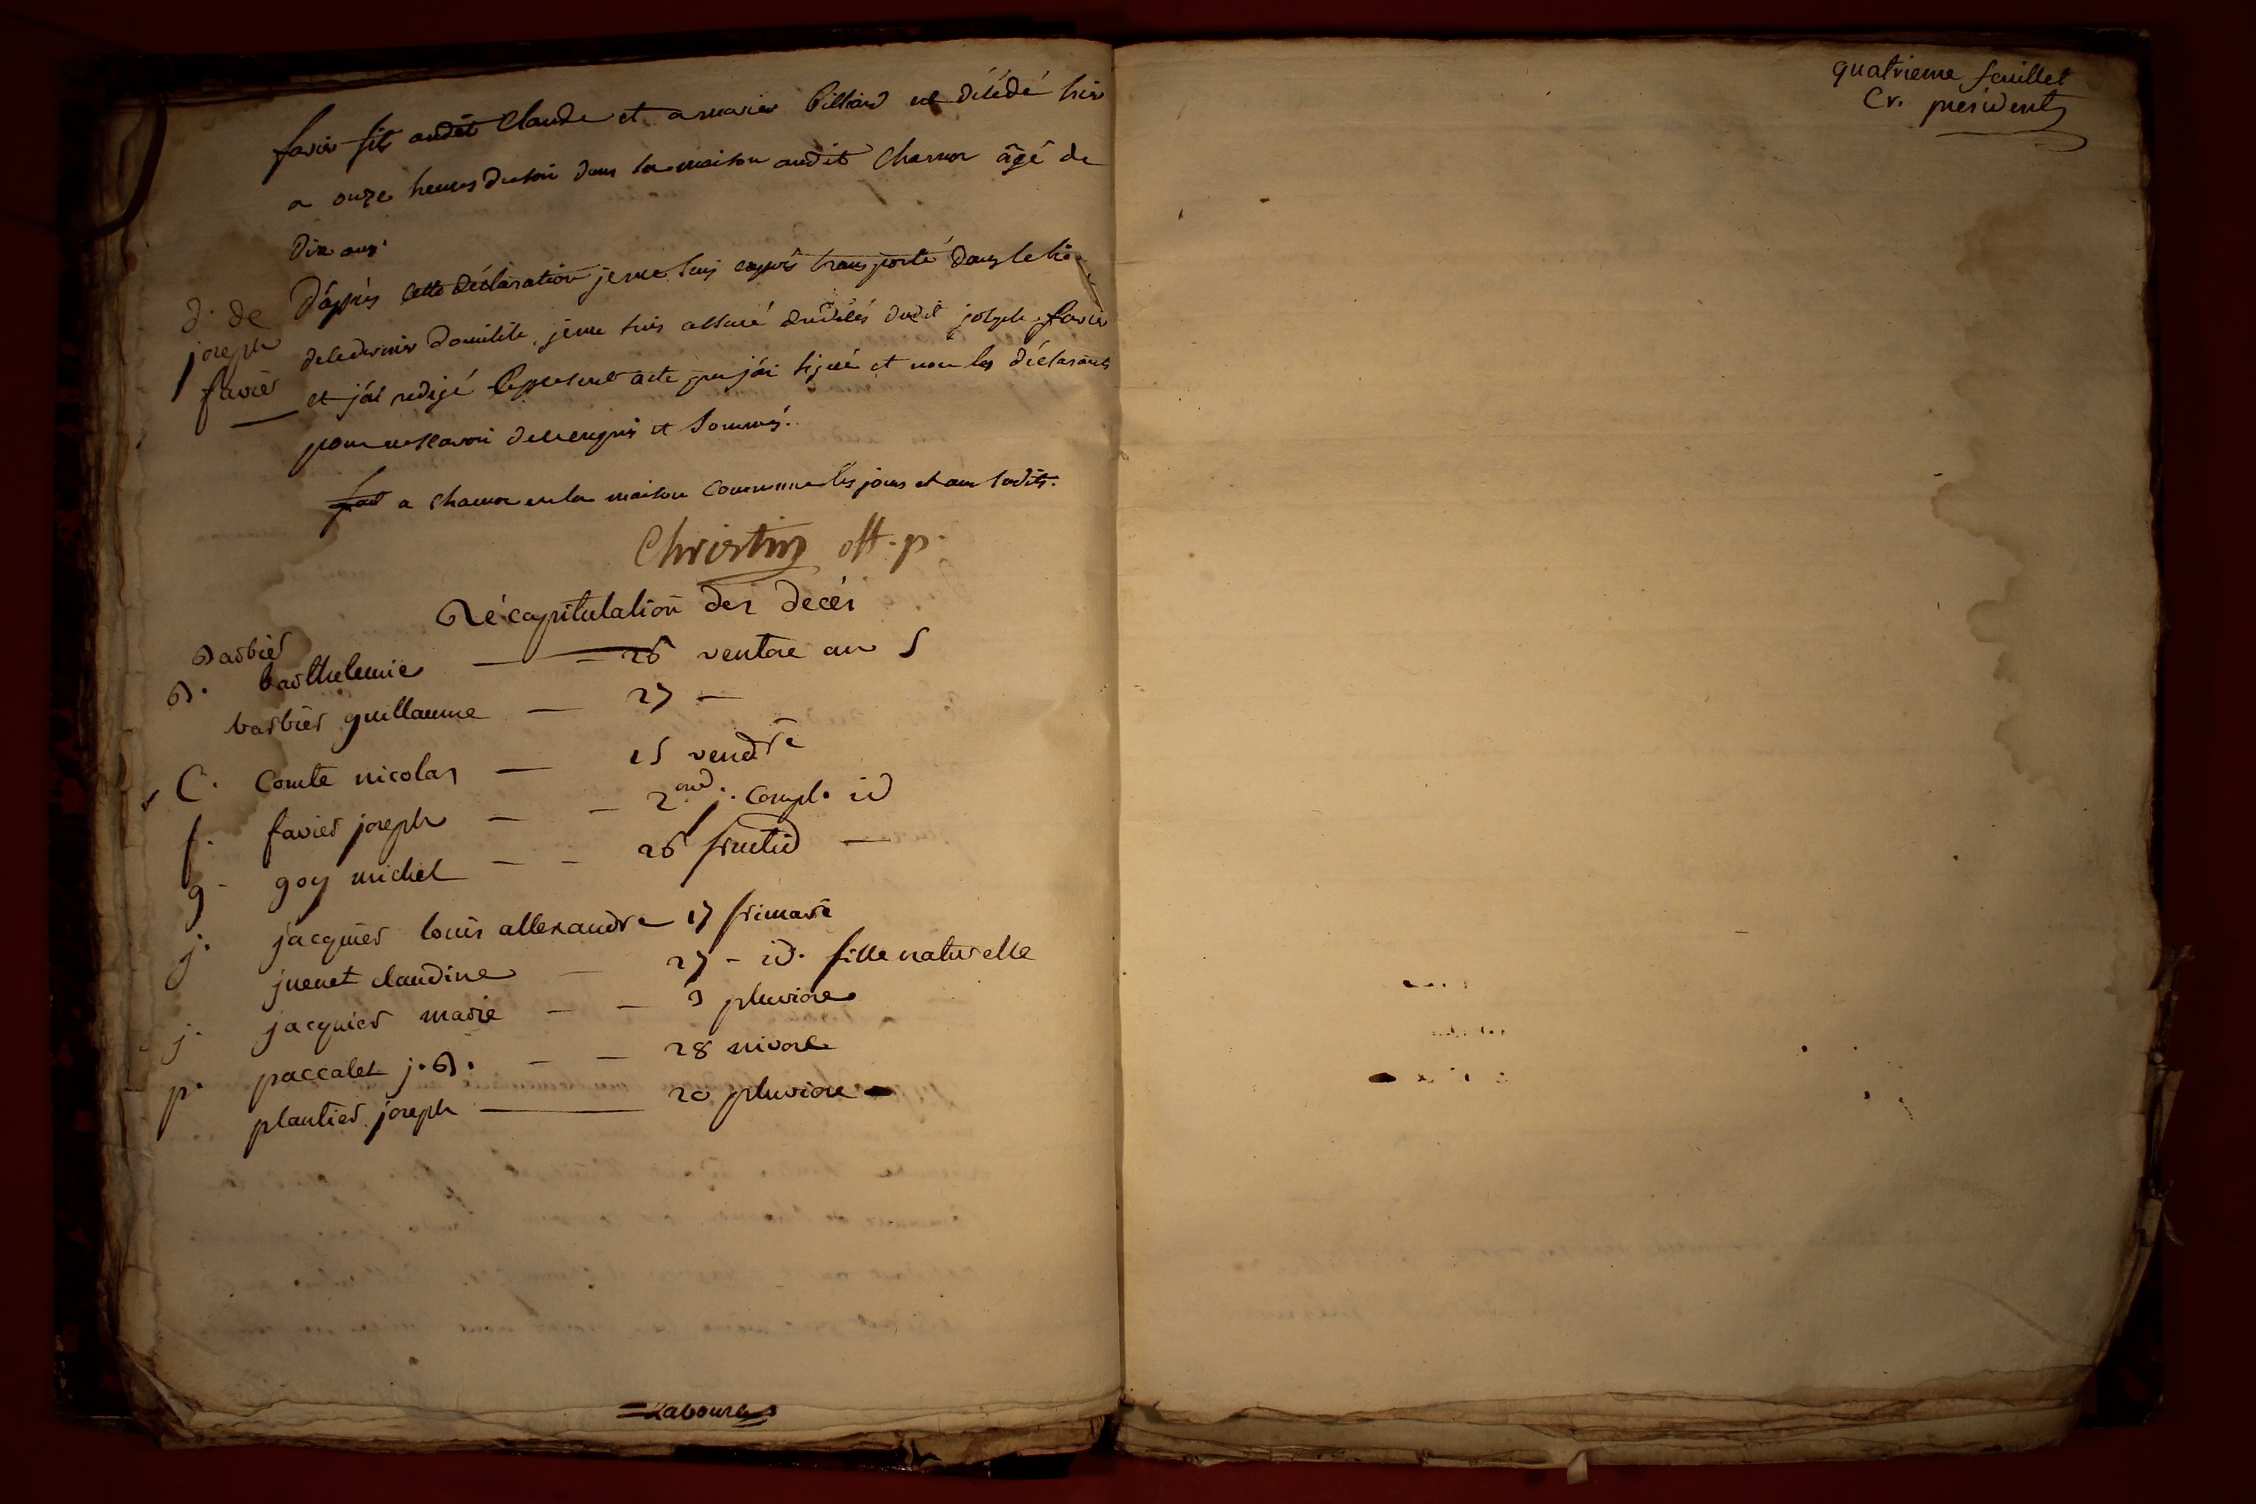 favier fils audit Claude et a marie billiard est décédé hier
a onze heures du soir dans sa maison audit Charnoz âgé de
dix ans.
D'après cette déclaration je me suis expres transporté dans le lieu
de ce dernier domicile, je me suis assuré du décés dudit joseph favier
et j'ai redigé le present acte que j'ai signé et non les déclarants
pour ne sçavoir de ce enquis et sommés.
fait a charnoz en la maison commune les jours et an susdits.
d. de
joseph
favier
Christin off. p.
Récapitulation des decés
Barbier
B. barthelemie — 26 ventose an 5
barbier guillaume — 27 —
C. Comte nicolas — 15 vendre
f. favier joseph — — 2ond j. compl. id
g. goy michel — — 26 fructid —
j. jacquier louis allexandre 17 frimare
juenet claudine — 27 - id. fille naturelle
j. jacquier marie — — 3 pluviose
p. paccalet j. B. — — 28 nivose
plantier joseph — 20 pluviose
Laboure
quatrieme feuillet
Cr. president